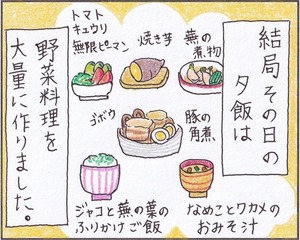 結局その日の
夕飯は
トマト
キュウリ
無限ピマン
焼き芋
蕪の
煮物
ゴボウ
豚の
角煮
ジャコと蕪の葉の
ふりかけご飯
なめことワカメの
おみそ汁
野菜料理を
大量に作りました。